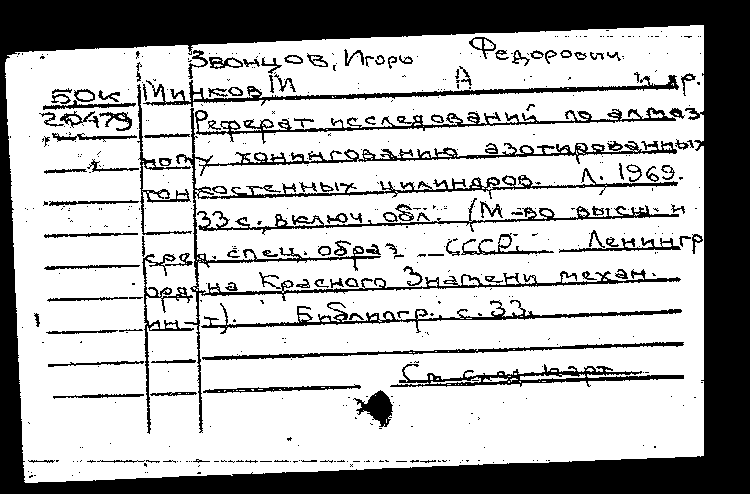 Звонцов, Игорь Федорович
БОК Минков, М А и др.
240479 Реферат исследований по алмаз-
ному хонингованию азотированных
тонкостенных цилиндров. Л. 1969.
33 с. включ. обл. (М-во высш. и
сред. спец. образ СССР. Ленингр
ордена Красного Знамени механ.
ин-т). Библиогр.: с. 33.
См след карт